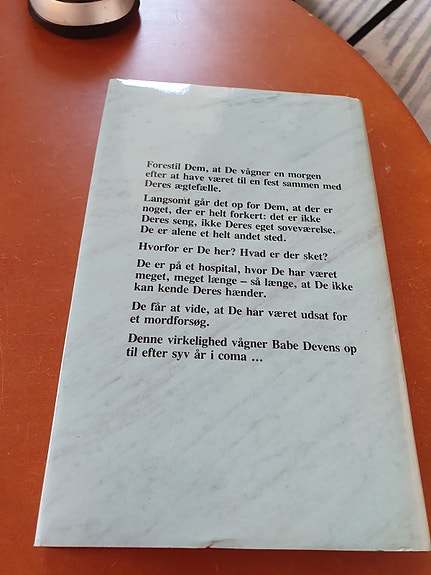 Forestil Dem, at De vågner en morgen
efter at have været til en fest sammen med
Deres ægtefælle.
Langsomt går det op for Dem, at der er
noget, der er helt forkert: det er ikke
Deres seng, ikke Deres eget soveværelse.
De er alene et helt andet sted.
Hvorfor er De her? Hvad er der sket?
De er på et hospital, hvor De har været
meget, meget længe – så længe, at De ikke
kan kende Deres hænder.
De får at vide, at De har været udsat for
et mordforsøg.
Denne virkelighed vågner Babe Devens op
til efter syv år i coma ...